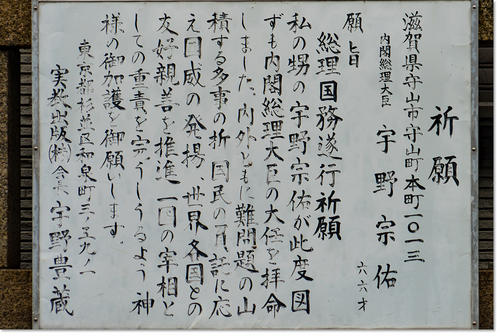 祈願
滋賀県守山市守山町本町一〇一三
内閣総理大臣 宇野宗佑 六六才
願旨
総理国務遂行祈願
私の甥の宇野宗佑が此度図
ずも内閣総理大臣の大任を拝命
しました、内外ともに難問題の山
積する多事の折、国民の負託に応
え国威の発揚、世界各国との
友好親善を推進一国の宰相と
しての重責を完うしうるよう神
様の御加護を御願いします。
東京都杉並区和泉町三ノ五九ノ一
実教出版(株)会長 宇野豊蔵